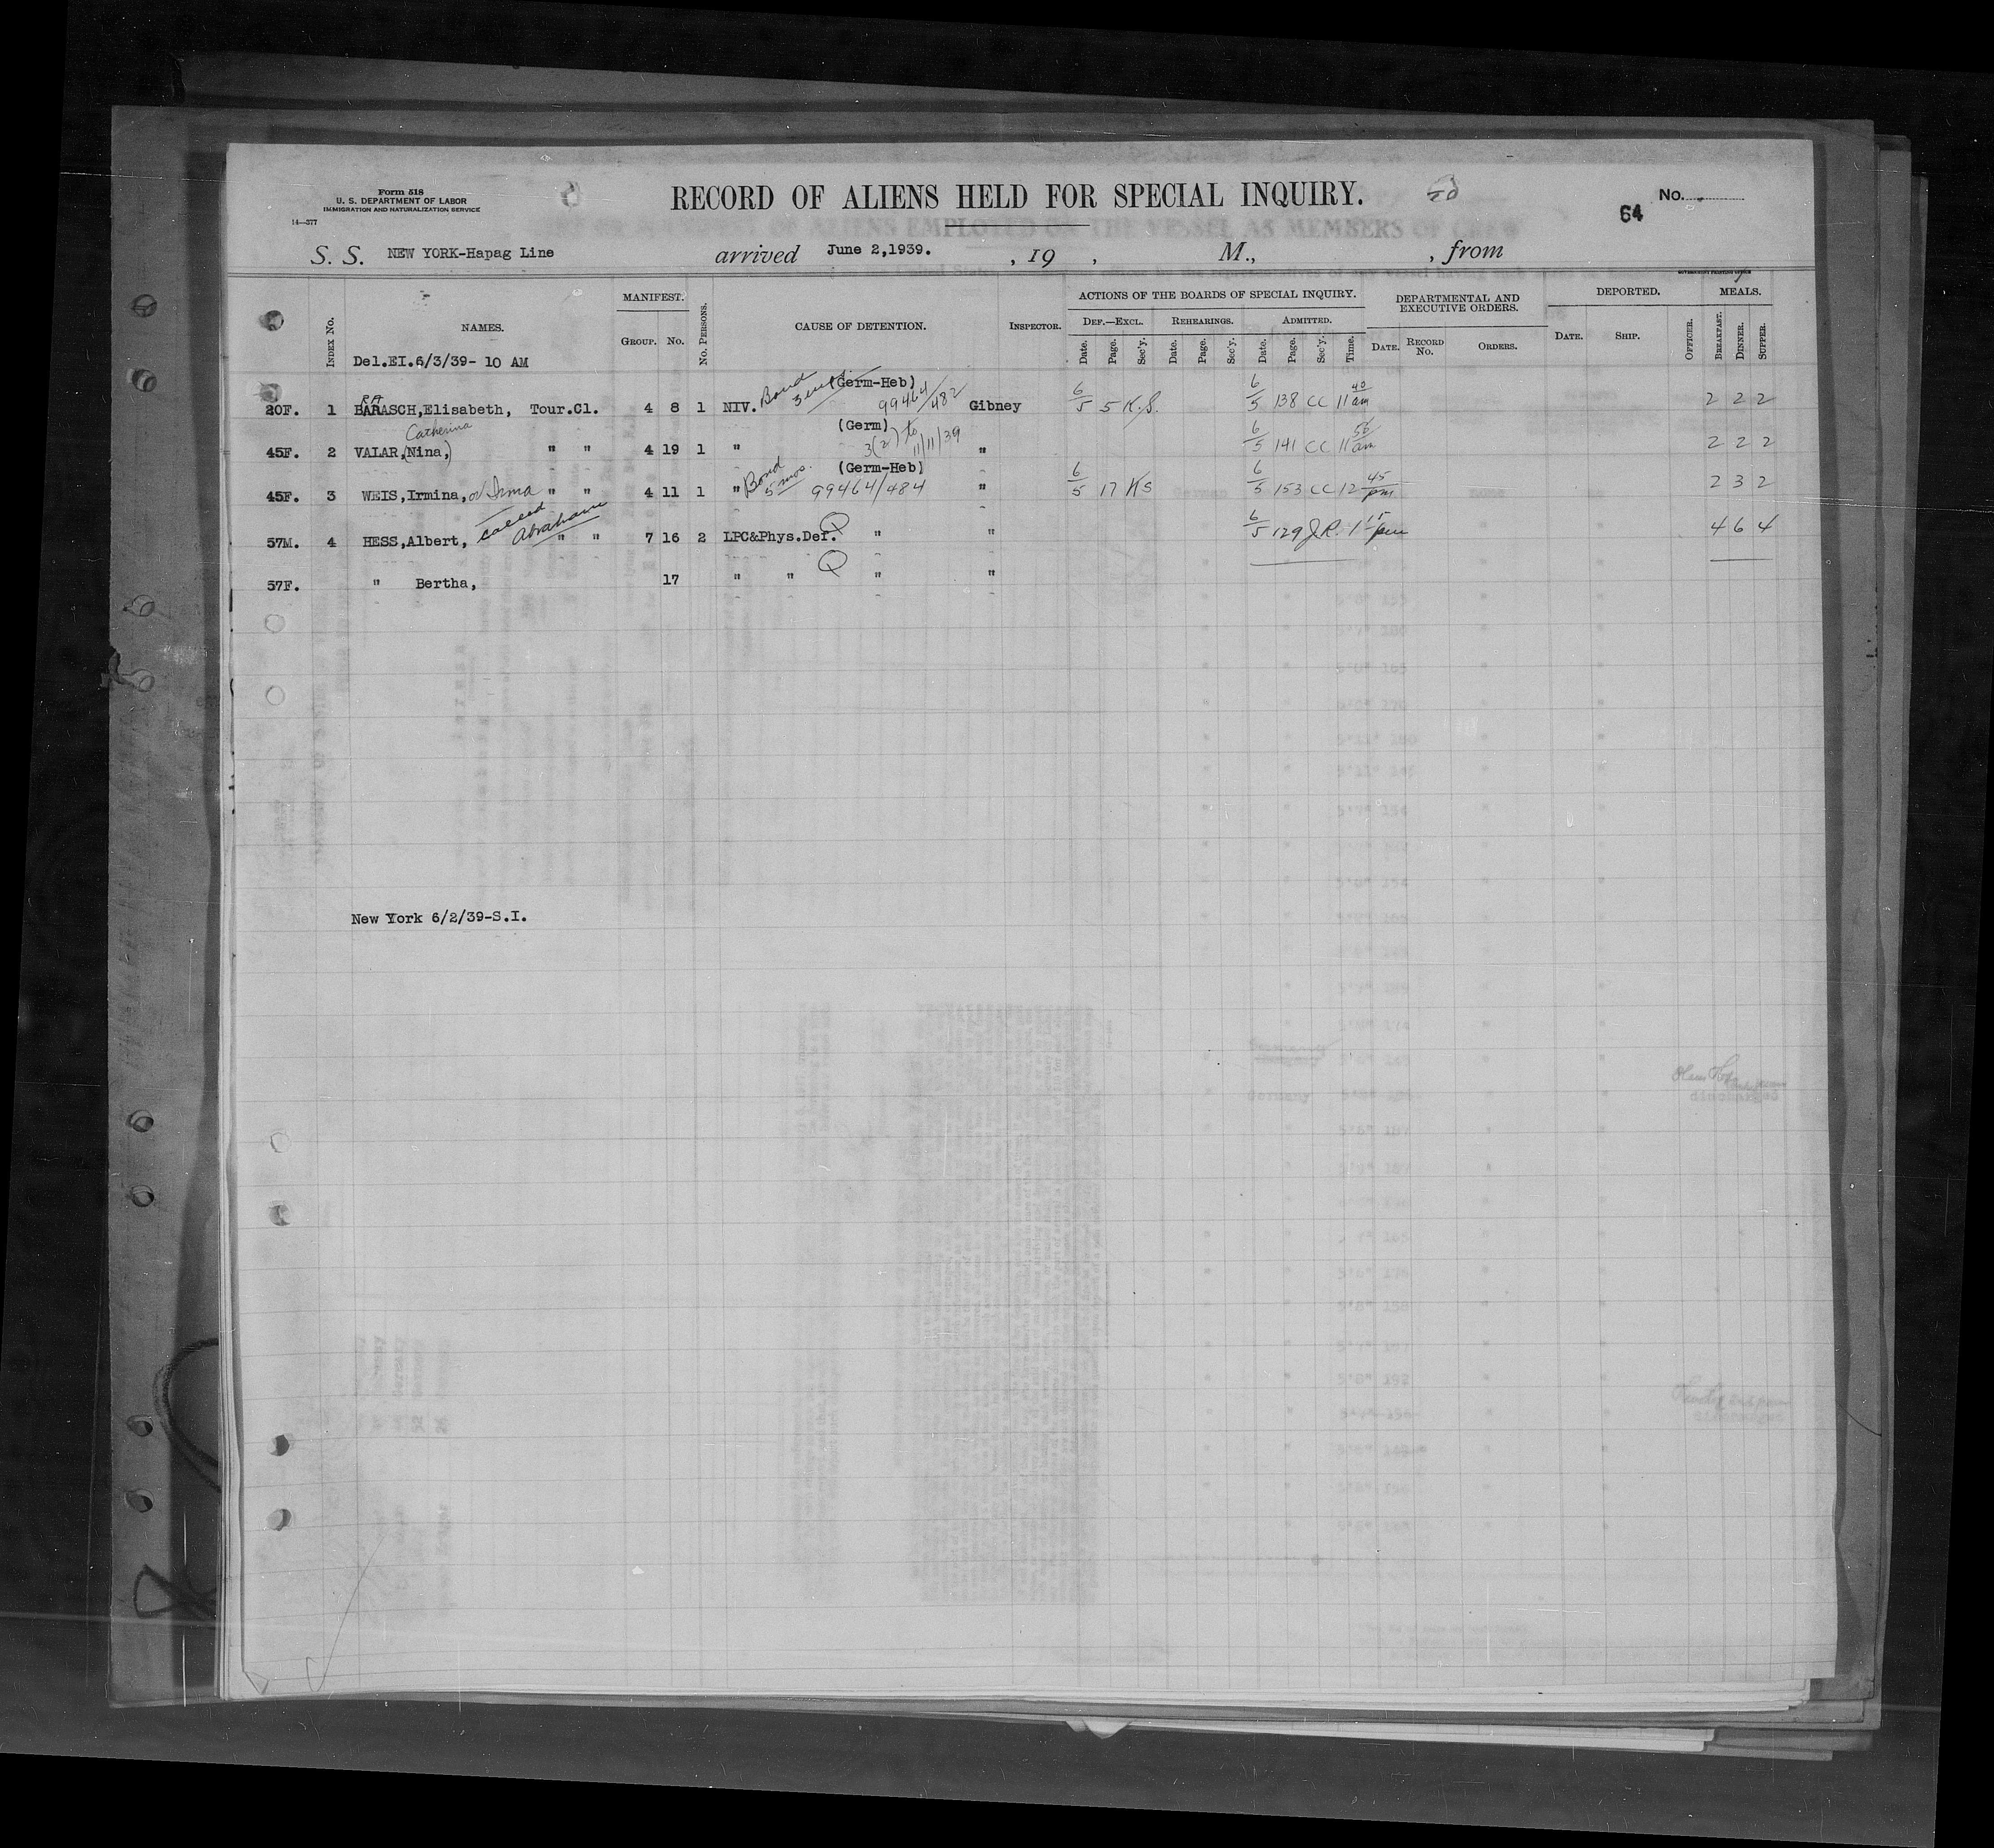 Form 518
U. S. DEPARTMENT OF LABOR
IMMIGRATION AND NATURALIZATION SERVICE
14—377
RECORD OF ALIENS HELD FOR SPECIAL INQUIRY.
50
64
No.
S. S. NEW YORK-Hapag Line arrived June 2,1939. , 19 , M., , from
GOVERNMENT PRINTING OFFICE
INDEX No. NAMES. MANIFEST. GROUP. No. No. PERSONS. CAUSE OF DETENTION. INSPECTOR. ACTIONS OF THE BOARDS OF SPECIAL INQUIRY. DEPARTMENTAL AND EXECUTIVE ORDERS. DEPORTED. MEALS.
DEF.—EXCL. REHEARINGS. ADMITTED.
Date. Page. Sec'y. Date. Page. Sec'y. Date. Page. Sec'y. Time. DATE. RECORD No. ORDERS. DATE. SHIP. OFFICER. BREAKFAST. DINNER. SUPPER.
Del.EI.6/3/39- 10 AM
(Germ-Heb)
20F. 1 BARASCH,Elisabeth, Tour.Cl. 4 8 1 NIV. Bond 99464/482 Gibney 6/5 5 K.S. 6/5 138 CC 11 40 am 2 2 2
Catherina (Germ)
45F. 2 VALAR,(Nina,) " " 4 19 1 " 3(2) to 11/11/39 " 6/5 141 CC 11 56 am 2 2 2
(Germ-Heb)
45F. 3 WEIS,Irmina, or Irma " " 4 11 1 " Bond 5 mos. 99464/484 " 6/5 17 KS 6/5 153 CC 12 45 pm 2 3 2
called Abraham
57M. 4 HESS,Albert, " " 7 16 2 LPC&Phys.Def. Q " " 6/5 129 J.R. 1 15 pm 4 6 4
57F. " Bertha, 17 " " Q " "
New York 6/2/39-S.I.